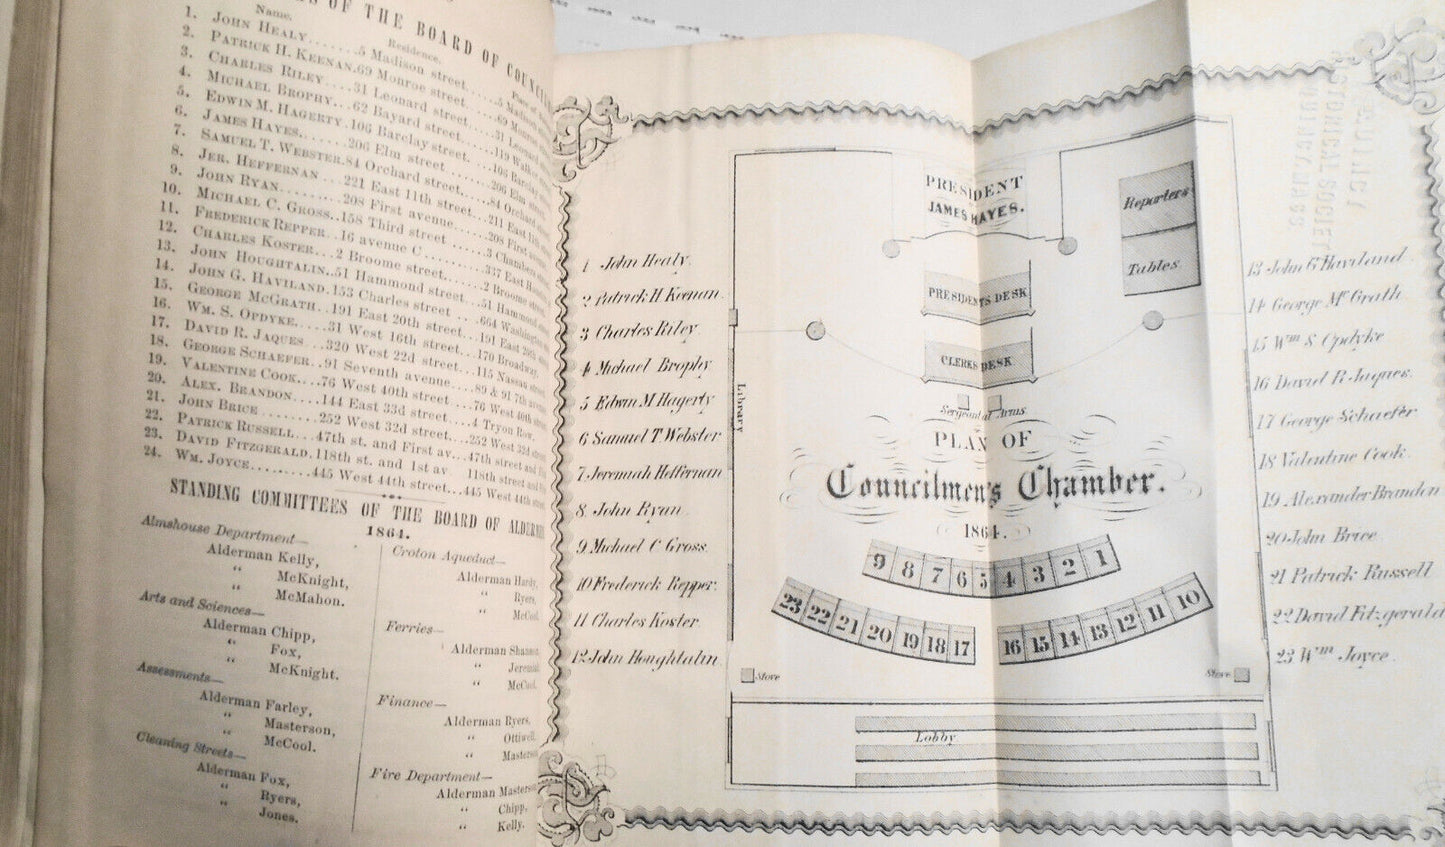 OF THE BOARD OF
Name. Residence.
1. JOHN HEALY........5 Madison street
2. PATRICK H. KEENAN.69 Monroe street
3. CHARLES RILEY....31 Leonard street
4. MICHAEL BROPHY...62 Bayard street
5. EDWIN M. HAGERTY.106 Barclay street
6. JAMES HAYES.......206 Elm street
7. SAMUEL T. WEBSTER.84 Orchard street
8. JER. HEFFERNAN...221 East 11th street
9. JOHN RYAN........208 First avenue
10. MICHAEL C. GROSS..158 Third street
11. FREDERICK REPPER..16 avenue C
12. CHARLES KOSTER...2 Broome street
13. JOHN HOUGHTALIN..51 Hammond street
14. JOHN G. HAVILAND.153 Charles street
15. GEORGE McGRATH..191 East 20th street
16. WM. S. OPDYKE.....31 West 16th street...170 Broadway.
17. DAVID R. JAQUES...320 West 22d street...115 Nassau street
18. GEORGE SCHAEFER..91 Seventh avenue...89 & 91 7th avenue
19. VALENTINE COOK....76 West 40th street...76 West 40th street
20. ALEX. BRANDON....144 East 33d street...4 Tryon Row.
21. JOHN BRICE........252 West 32d street...252 West 32d street
22. PATRICK RUSSELL...47th st. and First av...47th street and
23. DAVID FITZGERALD.118th st. and 1st av. 118th street and
24. WM. JOYCE.........445 West 44th street...445 West 44th street
STANDING COMMITTEES OF THE BOARD OF
1864.
Almshouse Department—
Alderman Kelly,
“ McKnight,
“ McMahon.
Arts and Sciences—
Alderman Chipp,
“ Fox,
“ McKnight.
Assessments—
Alderman Farley,
“ Masterson,
“ McCool.
Cleaning Streets—
Alderman Fox,
“ Ryers,
“ Jones.
Croton Aqueduct—
Alderman Hardy,
“ Ryers,
“ McCool
Ferries—
Alderman Shannon
“
“ McCool.
Finance—
Alderman Ryers,
“ Ottiwell,
“ Masterson
Fire Department—
Alderman Masterson
“ Chipp,
“ Kelly.
1 John Healy.
2 Patrick H Keenan.
3 Charles Riley
4 Michael Brophy
5 Edwin M Hagerty
6 Samuel T. Webster
7 Jeremiah Heffernan
8 John Ryan
9 Michael C Gross.
10 Frederick Repper.
11 Charles Koster
12 John Houghtalin
PRESIDENT
JAMES HAYES.
PRESIDENTS DESK
CLERKS DESK
Sergeant at Arms
Reporters
Tables
Library
PLAN OF
Councilmen's Chamber.
1864.
9 8 7 6 5 4 3 2 1
23 22 21 20 19 18 17 16 15 14 13 12 11 10
Stove
Stove
Lobby
13 John G Haviland
14 George Mc Grath
15 Wm S Opdyke
16 David R Jaques.
17 George Schaefer
18 Valentine Cook
19 Alexander Brandon
20 John Brice
21 Patrick Russell
22 David Fitzgerald
23 Wm Joyce.